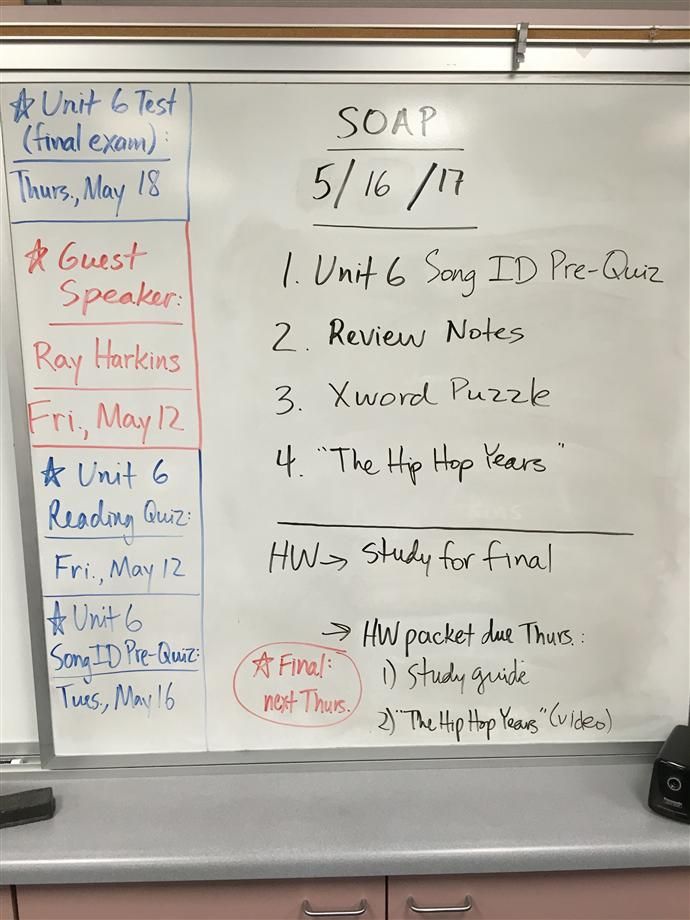 ☆ Unit 6 Test
(final exam):
Thurs., May 18
☆ Guest
Speaker:
Ray Harkins
Fri., May 12
☆ Unit 6
Reading Quiz:
Fri., May 12
☆ Unit 6
Song ID Pre-Quiz:
Tues., May 16
SOAP
5/16/17
1. Unit 6 Song ID Pre-Quiz
2. Review Notes
3. Xword Puzzle
4. "The Hip Hop Years"
HW → Study for final
→ HW packet due Thurs.:
1) Study guide
2) "The Hip Hop Years" (video)
☆ Final:
next Thurs.